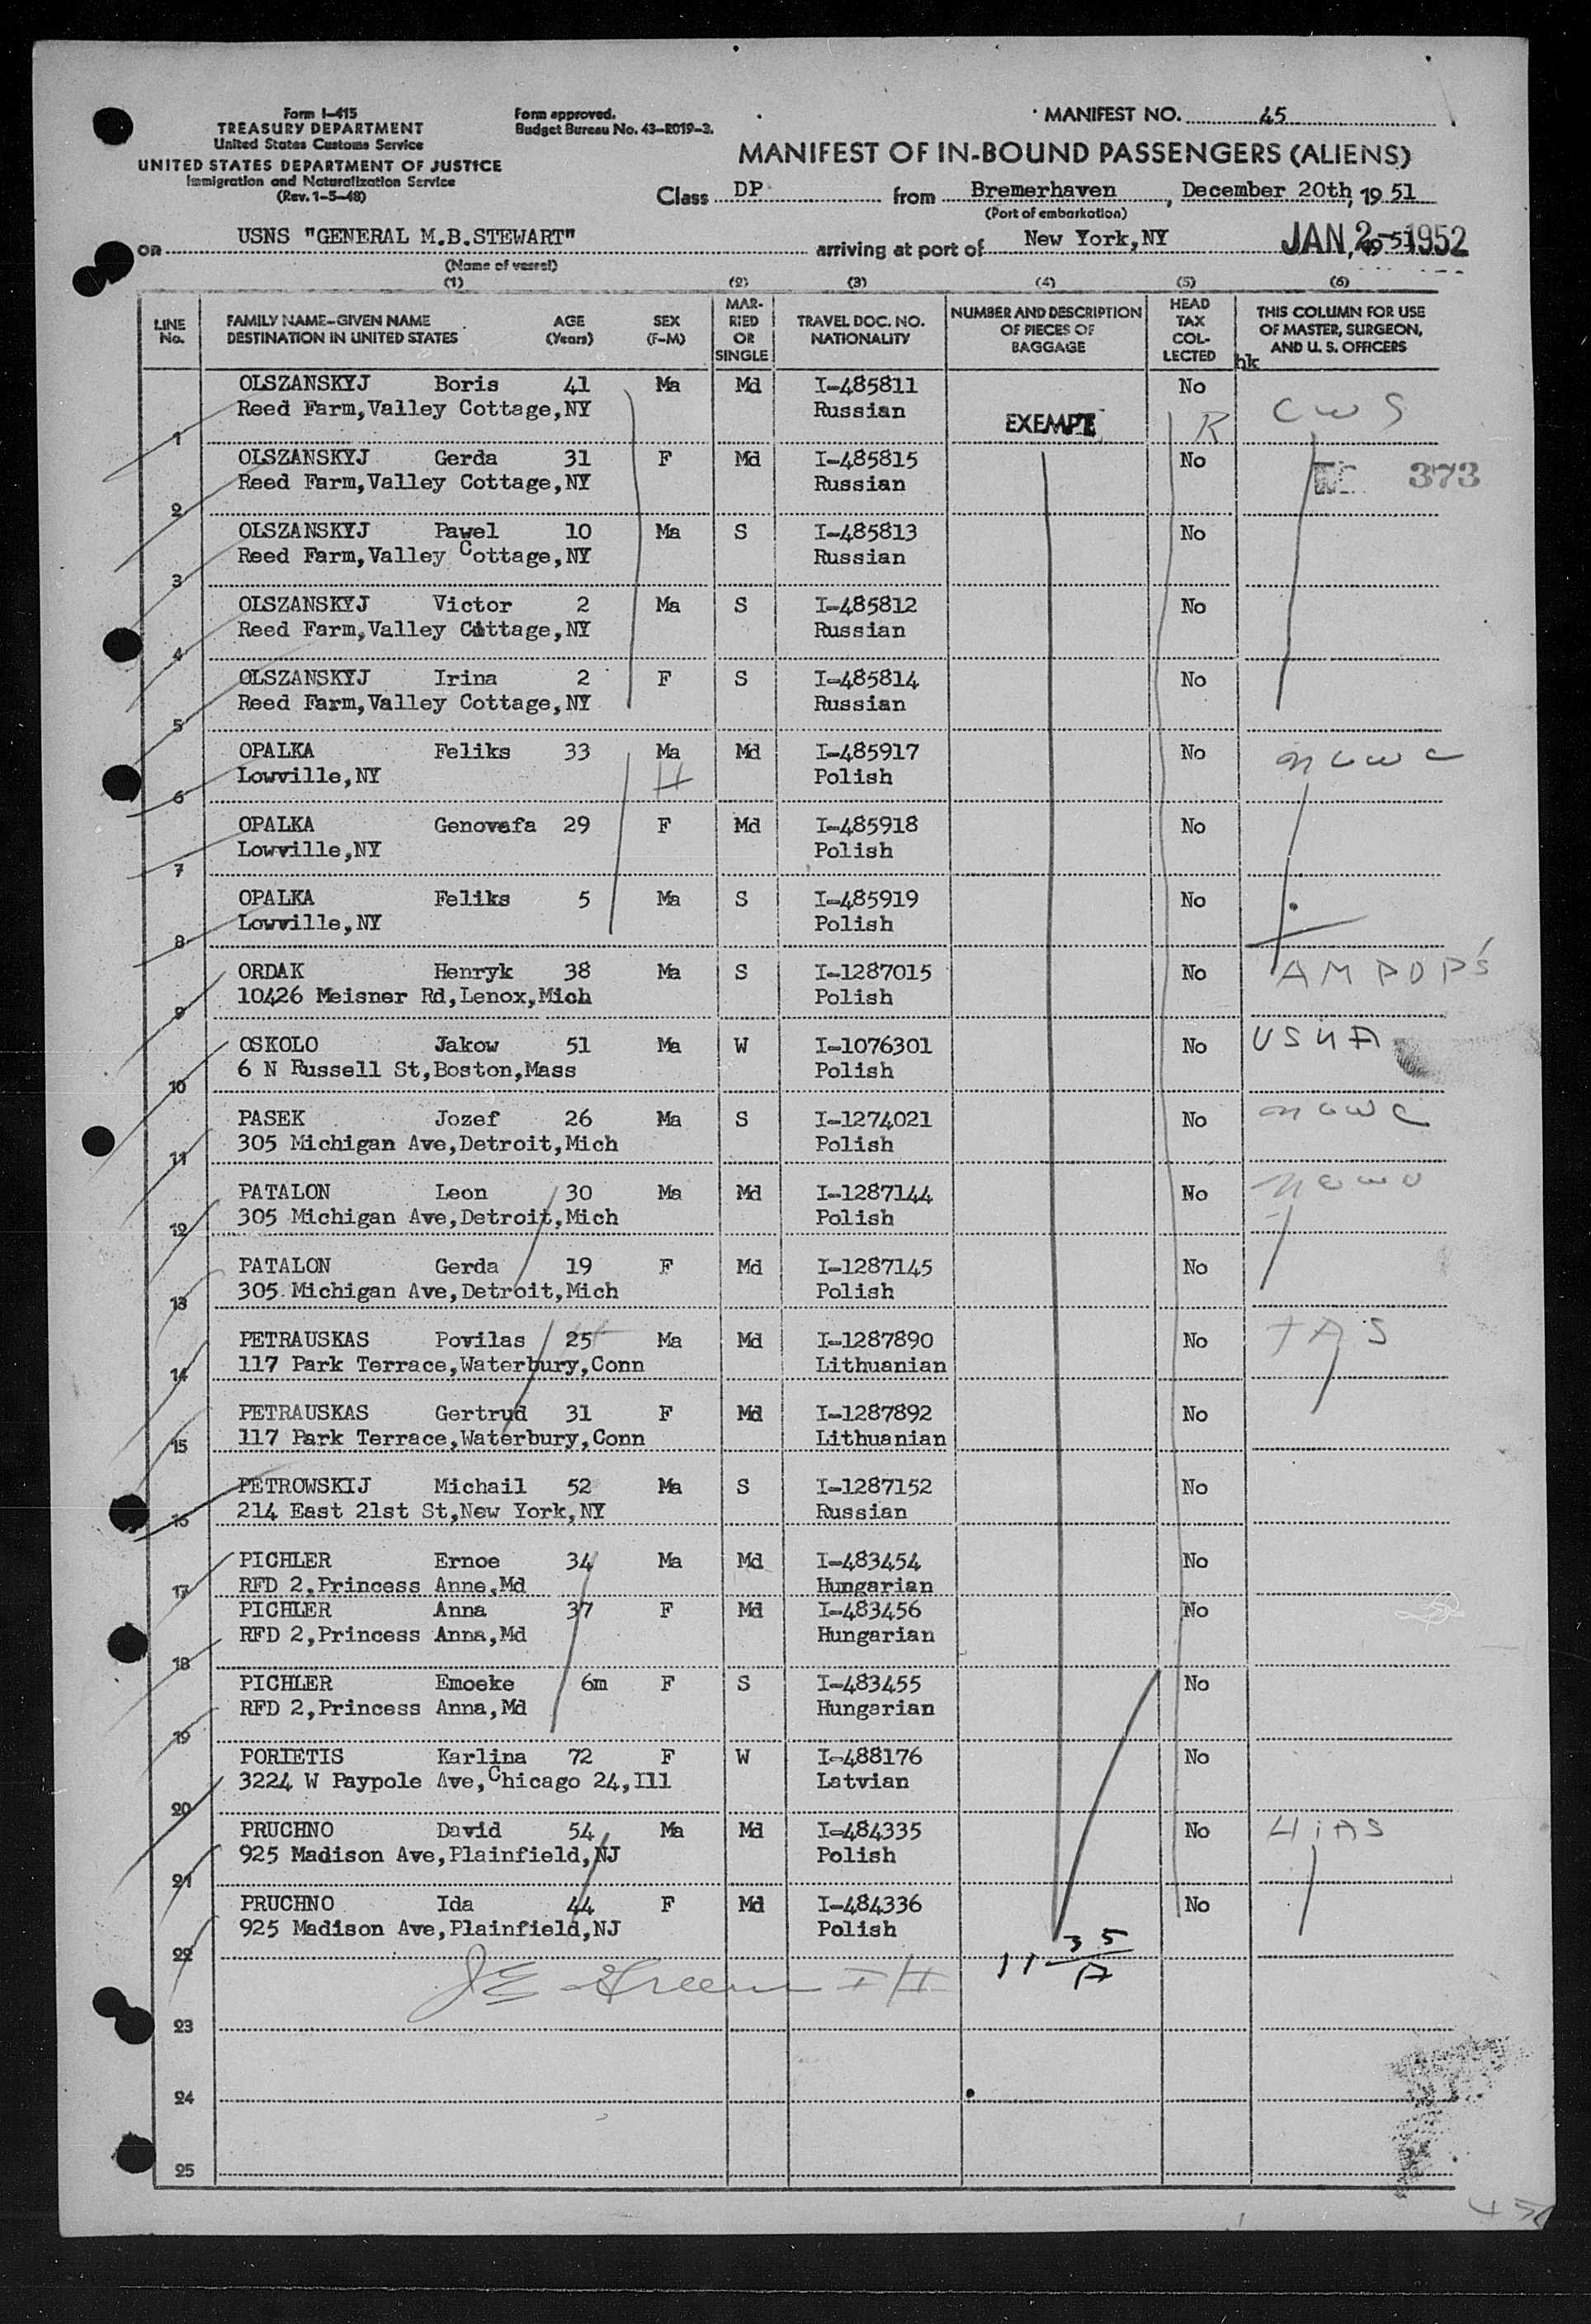 Form I-415
TREASURY DEPARTMENT
United States Customs Service
UNITED STATES DEPARTMENT OF JUSTICE
Immigration and Naturalization Service
(Rev. 1-5-48)
Form approved.
Budget Bureau No. 43-R019-2.
MANIFEST NO. 45
MANIFEST OF IN-BOUND PASSENGERS (ALIENS)
Class DP from Bremerhaven, December 20th, 19 51
(Port of embarkation)
on USNS "GENERAL M.B.STEWART" arriving at port of New York,NY JAN 2-1952
(Name of vessel)
(1) (2) (3) (4) (5) (6)
LINE No. FAMILY NAME-GIVEN NAME DESTINATION IN UNITED STATES AGE (Years) SEX (F-M) MARRIED OR SINGLE TRAVEL DOC. NO. NATIONALITY NUMBER AND DESCRIPTION OF PIECES OF BAGGAGE HEAD TAX COLLECTED THIS COLUMN FOR USE OF MASTER, SURGEON, AND U. S. OFFICERS
hk
OLSZANSKYJ Boris 41 Ma Md I-485811 No CWS
1 Reed Farm,Valley Cottage,NY Russian EXEMPT R
OLSZANSKYJ Gerda 31 F Md I-485815 No 373
2 Reed Farm,Valley Cottage,NY Russian
OLSZANSKYJ Pawel 10 Ma S I-485813 No
3 Reed Farm,Valley Cottage,NY Russian
OLSZANSKYJ Victor 2 Ma S I-485812 No
4 Reed Farm,Valley Cittage,NY Russian
OLSZANSKYJ Irina 2 F S I-485814 No
5 Reed Farm,Valley Cottage,NY Russian
OPALKA Feliks 33 Ma Md I-485917 No NCWC
6 Lowville,NY H Polish
OPALKA Genovefa 29 F Md I-485918 No
7 Lowville,NY Polish
OPALKA Feliks 5 Ma S I-485919 No
8 Lowville,NY Polish
ORDAK Henryk 38 Ma S I-1287015 No AMPDP's
9 10426 Meisner Rd,Lenox,Mich Polish
OSKOLO Jakow 51 Ma W I-1076301 No USNA
10 6 N Russell St,Boston,Mass Polish
PASEK Jozef 26 Ma S I-1274021 No NCWC
11 305 Michigan Ave,Detroit,Mich Polish
PATALON Leon 30 Ma Md I-1287144 No NCWC
12 305 Michigan Ave,Detroit,Mich Polish
PATALON Gerda 19 F Md I-1287145 No
13 305 Michigan Ave,Detroit,Mich Polish
PETRAUSKAS Povilas 25 Ma Md I-1287890 No IAS
14 117 Park Terrace,Waterbury,Conn Lithuanian
PETRAUSKAS Gertrud 31 F Md I-1287892 No
15 117 Park Terrace,Waterbury,Conn Lithuanian
PETROWSKIJ Michail 52 Ma S I-1287152 No
16 214 East 21st St,New York,NY Russian
PICHLER Ernoe 34 Ma Md I-483454 No
17 RFD 2,Princess Anne,Md Hungarian
PICHLER Anna 37 F Md I-483456 No
18 RFD 2,Princess Anna,Md Hungarian
PICHLER Emoeke 6m F S I-483455 No
19 RFD 2,Princess Anna,Md Hungarian
PORIETIS Karlina 72 F W I-488176 No
20 3224 W Paypole Ave,Chicago 24,Ill Latvian
PRUCHNO David 54 Ma Md I-484335 No HIAS
21 925 Madison Ave,Plainfield,NJ Polish
PRUCHNO Ida 44 F Md I-484336 No
22 925 Madison Ave,Plainfield,NJ Polish
11 35/A
JE Green IH
23
24
25